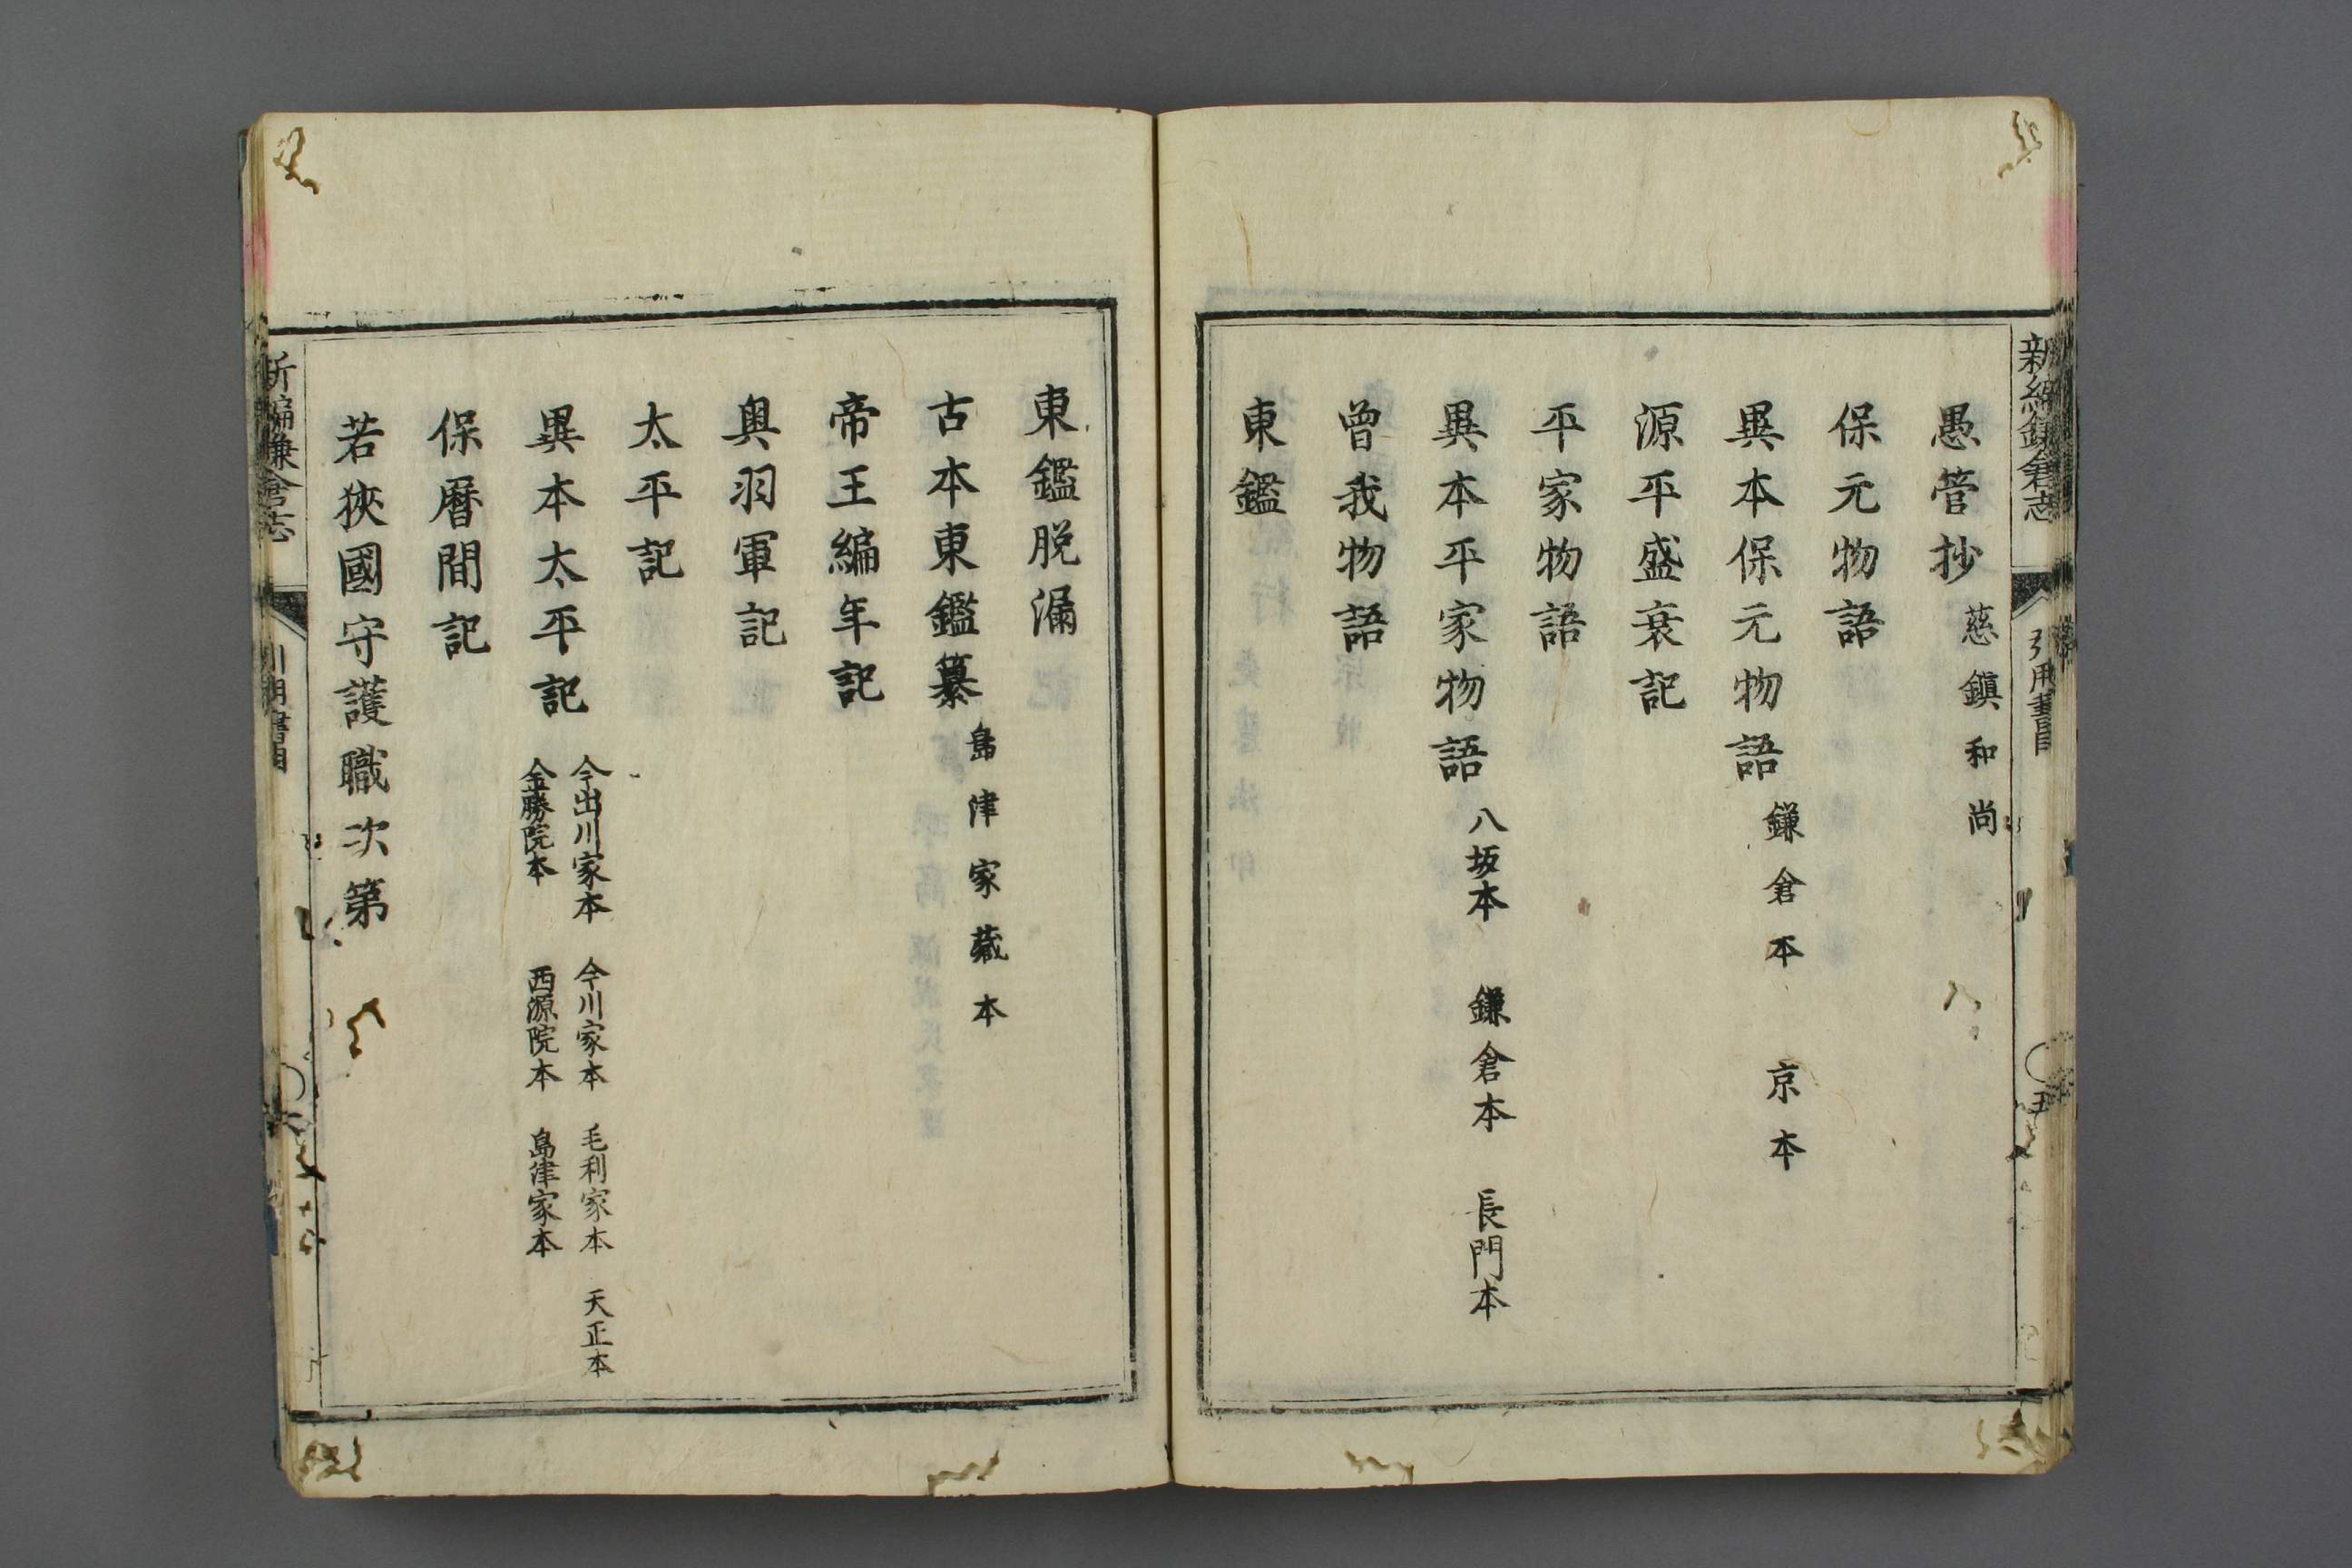 新編鎌倉志 引用書目 五
愚管抄 慈鎮和尚
保元物語
異本保元物語 鎌倉本 京本
源平盛衰記
平家物語
異本平家物語 八坂本 鎌倉本 長門本
曾我物語
東鑑
東鑑脱漏
古本東鑑纂 島津家蔵本
帝王編年記
奥羽軍記
太平記
異本太平記 今出川家本 今川家本 毛利家本 天正本
金勝院本 西源院本 島津家本
保暦間記
若狹國守護職次第
新編鎌倉志 引用書目 六